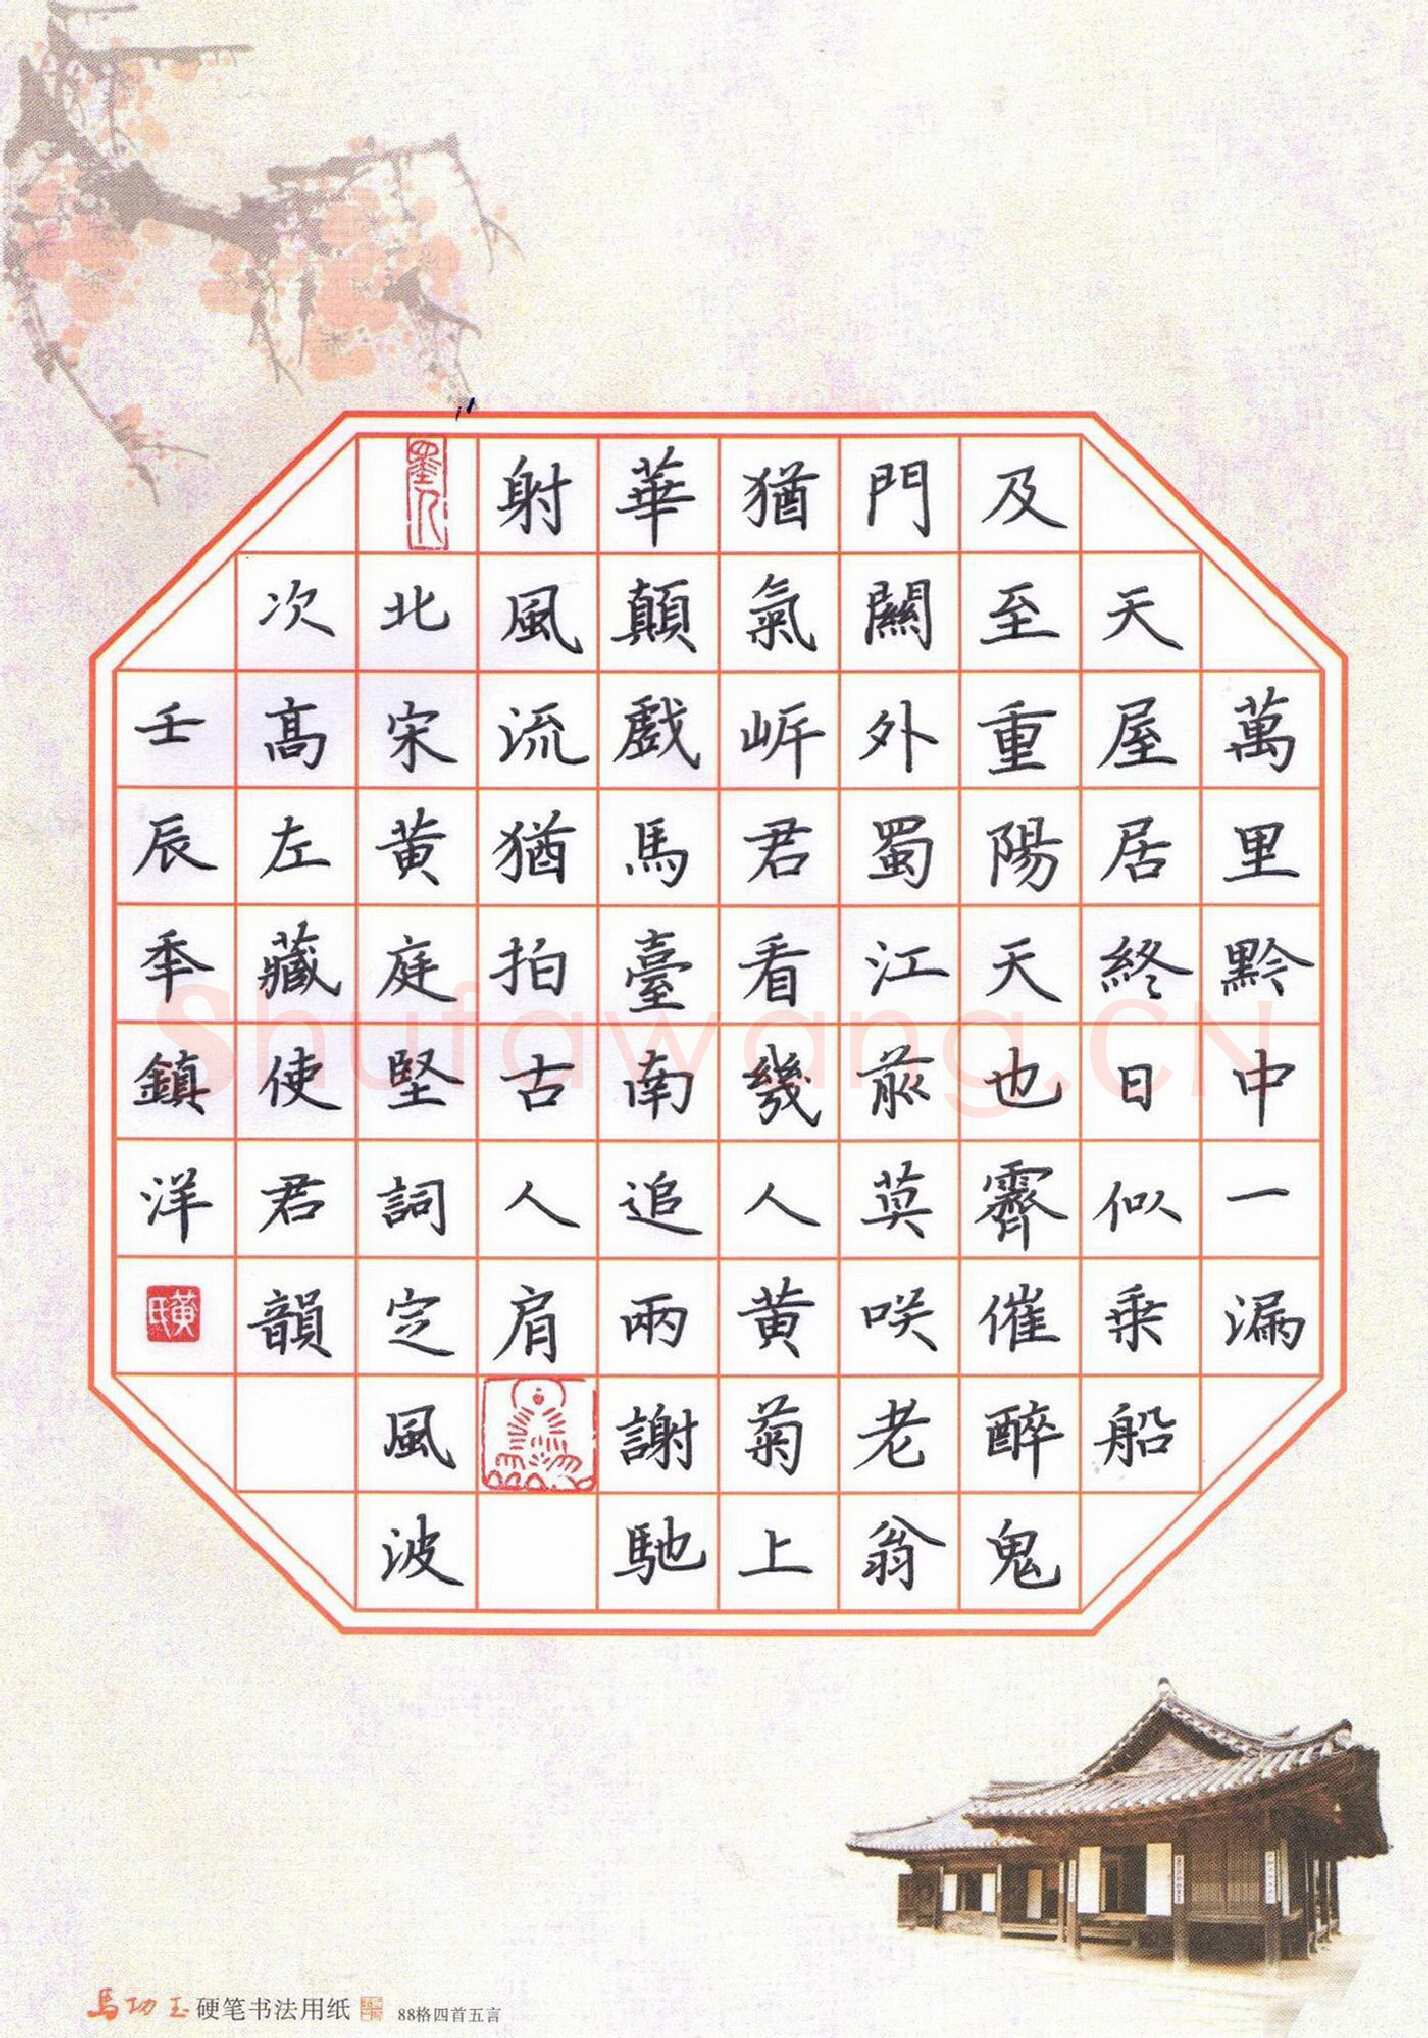 萬里黔中一漏
天屋居終日似乗船
及至重陽天也霽催醉鬼
門關外蜀江前莫咲老翁
猶氣岸君看幾人黄菊上
華顛戲馬臺南追兩謝馳
射風流猶拍古人肩
北宋黄庭堅詞定風波
次高左藏使君韻
壬辰季鎮洋
黄氏
Shufawang.CN
馬功玉硬笔书法用纸 88格四首五言